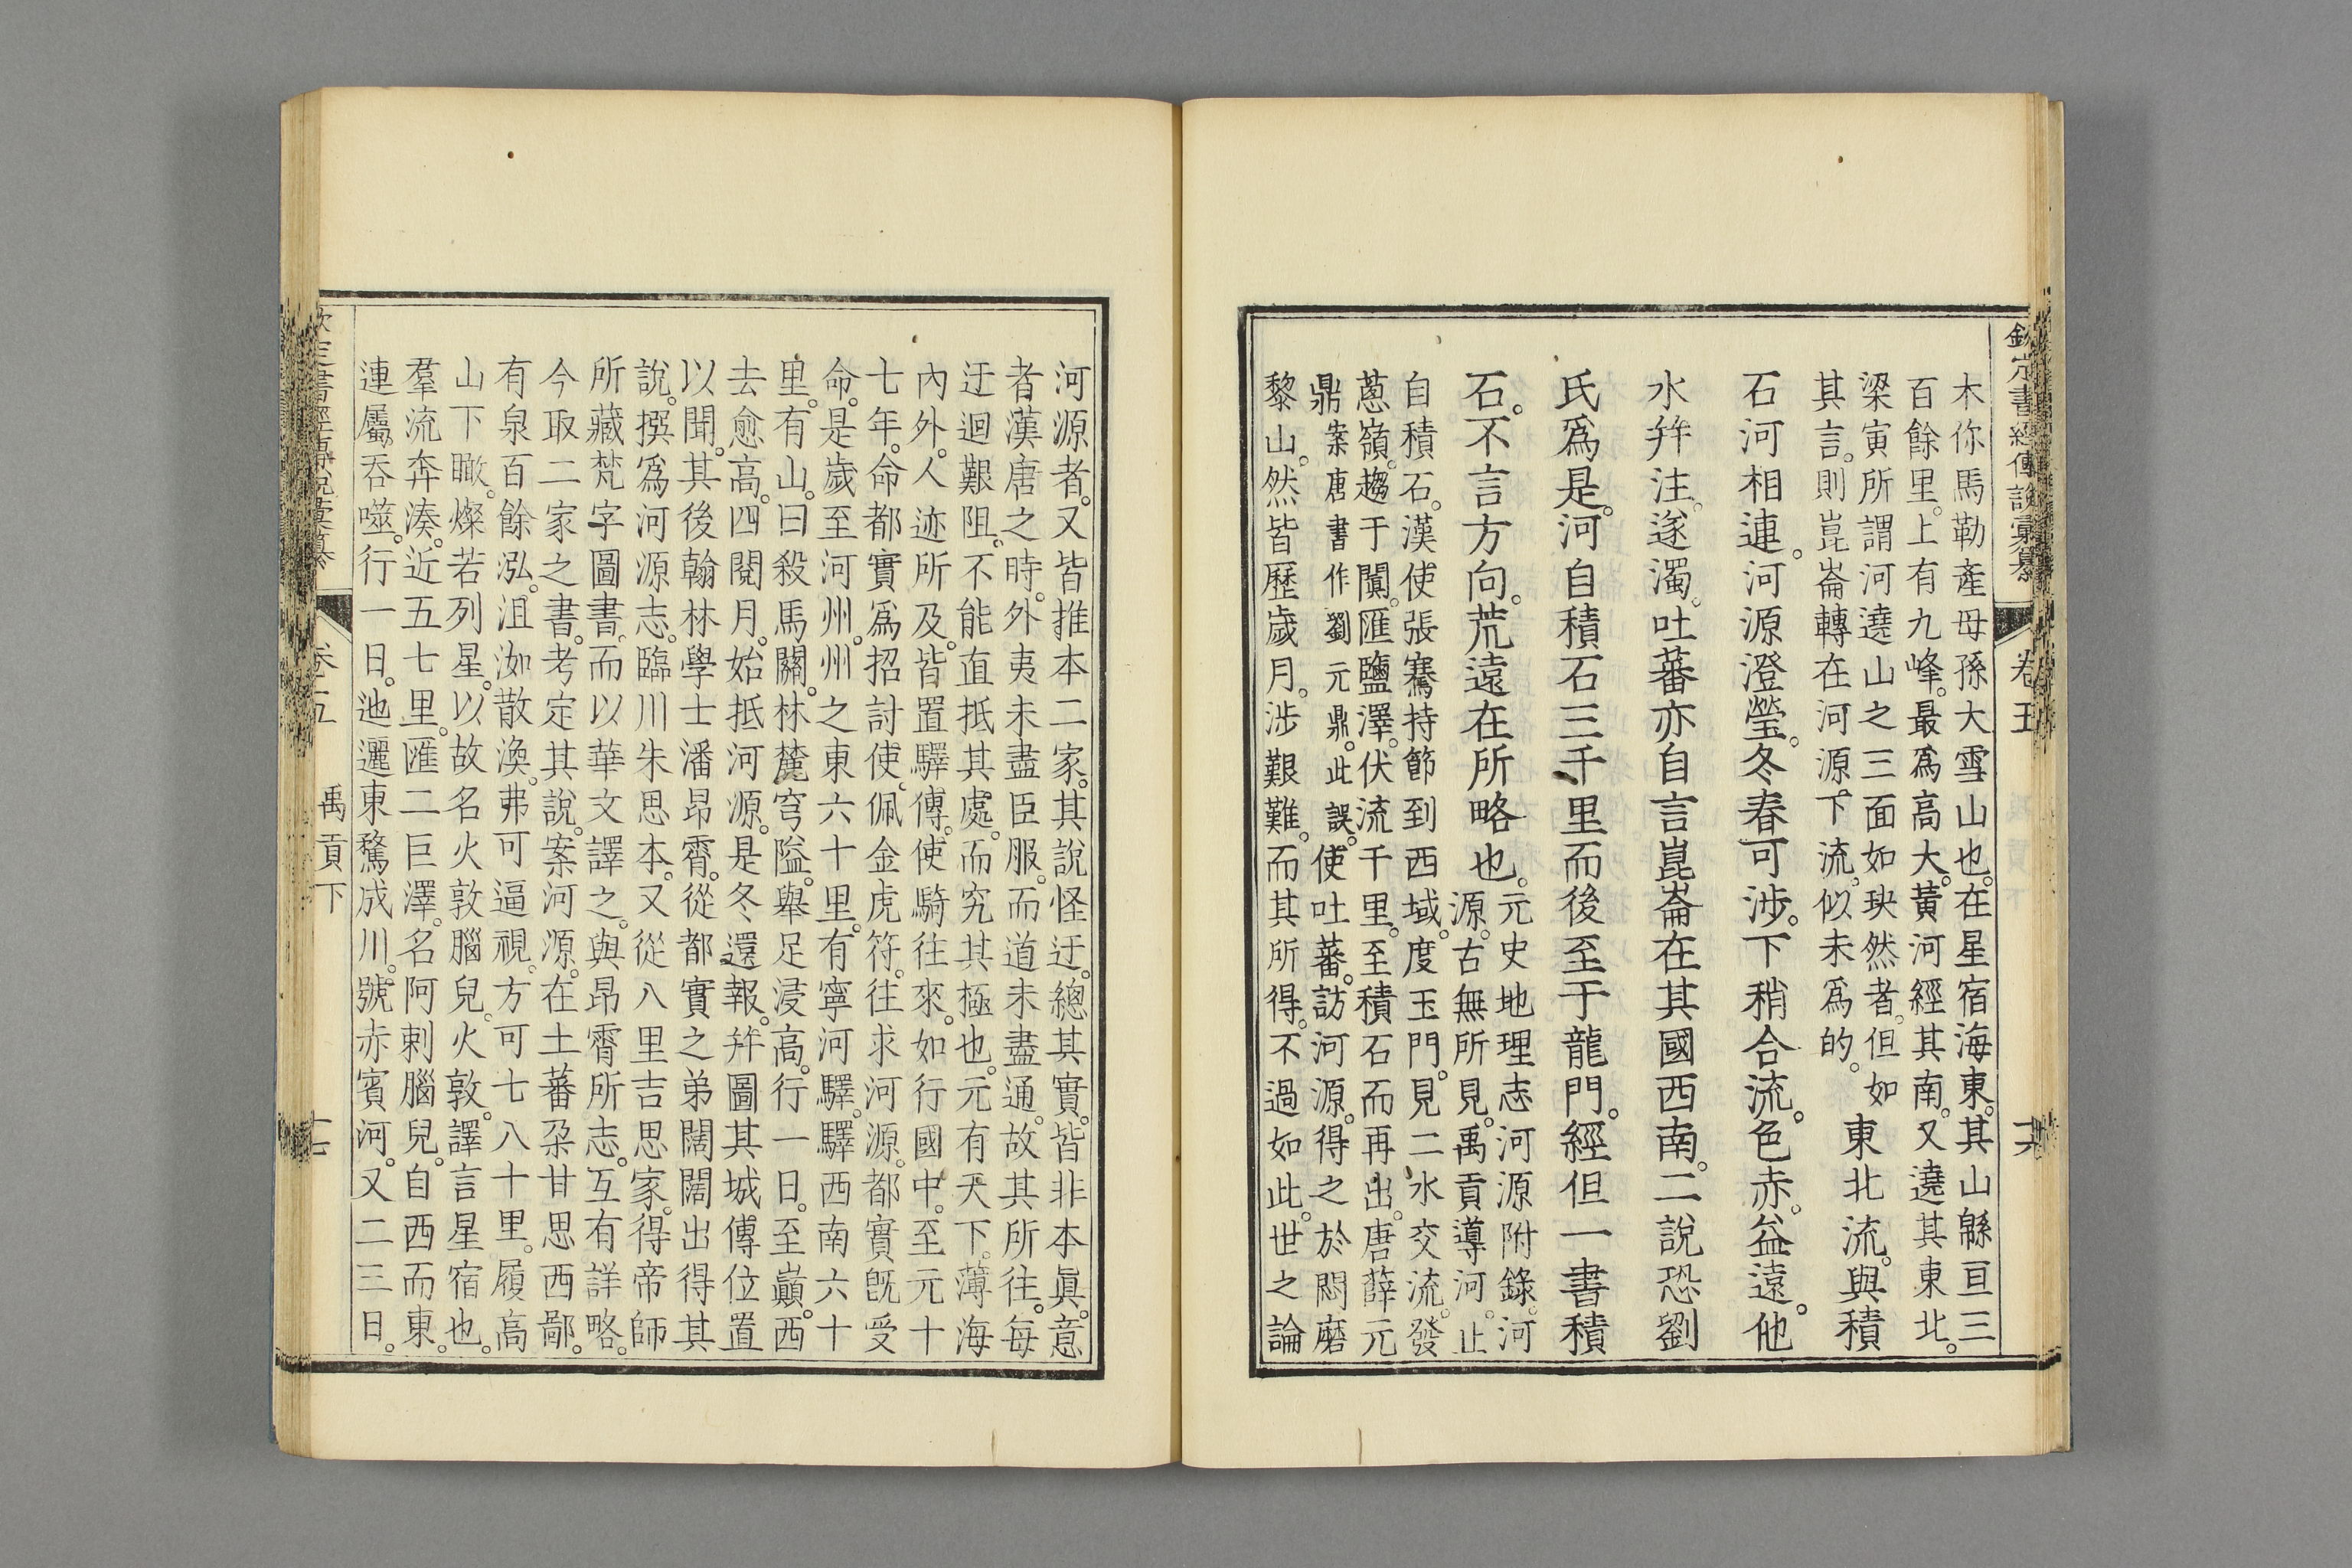 欽定書經傳說彙纂 卷五 十六
木你馬勒產母孫大雪山也。在星宿海東。其山緜亘三
百餘里。上有九峰。最爲高大。黃河經其南。又遶其東北。
梁寅所謂河遶山之三面如玦然者。但如
其言。則崑崙轉在河源下流。似未爲的。
東北流。與積
石河相連。河源澄瑩。冬春可涉。下稍合流。色赤。益遠。他
水幷注。遂濁。吐蕃亦自言崑崙在其國西南。二說恐劉
氏爲是。河自積石三千里而後至于龍門。經但一書積
石。不言方向。荒遠在所略也。
元史地理志河源附錄。河
源。古無所見。禹貢導河。止
自積石。漢使張騫持節到西域。度玉門。見二水交流。發
蔥嶺。趨于闐。匯鹽澤。伏流千里。至積石而再出。唐薛元
鼎案唐書作劉元鼎。此誤。使吐蕃。訪河源。得之於悶磨
黎山。然皆歷歲月。涉艱難。而其所得。不過如此。世之論
河源者。又皆推本二家。其說怪迂。總其實。皆非本眞。意
者漢唐之時。外夷未盡臣服。而道未盡通。故其所往。每
迂迴艱阻。不能直抵其處。而究其極也。元有天下。薄海
內外。人迹所及。皆置驛傳。使騎往來。如行國中。至元十
七年。命都實爲招討使。佩金虎符。往求河源。都實旣受
命。是歲至河州。州之東六十里。有寧河驛。驛西南六十
里。有山。曰殺馬關。林麓穹隘。舉足浸高。行一日。至巔。西
去愈高。四閱月。始抵河源。是冬還報。幷圖其城傳位置
以聞。其後翰林學士潘昂霄。從都實之弟闊闊出得其
說。撰爲河源志。臨川朱思本。又從八里吉思家。得帝師
所藏梵字圖書。而以華文譯之。與昂霄所志。互有詳略。
今取二家之書。考定其說。案河源。在土蕃朶甘思西鄙。
有泉百餘泓。沮洳散渙。弗可逼視。方可七八十里。履高
山下瞰。燦若列星。以故名火敦腦兒。火敦。譯言星宿也。
羣流奔湊。近五七里。匯二巨澤。名阿剌腦兒。自西而東。
連屬。吞噬。行一日。迤邐東騖成川。號赤賓河。又二三日。
欽定書經傳說彙纂 卷五 禹貢下 十七